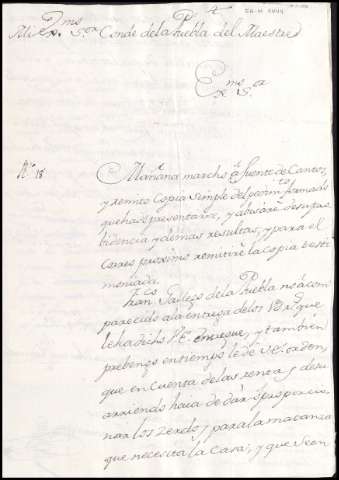 Mi ex.mo S.or Conde de la Puebla del Maestre
Ex.mo S.or
N.º 18
Mañana marcho a fuente de Cantos,
y remito Copia simple del formado
que ha de presentarse, y de su pro
bidencia y demas resultas, y para el
Correo proximo remitire la copia testi
moniada.
Fran.co Gallego de la Puebla no a com
parecido a la entrega de los que
le ha dicho V.E. entregue, y tambien
prebengo en tiempo le de V.E. orden,
que en cuenta de las rentas, y de su
arriendo haia de dar, y proporcio
nar los Zerdos para la matanza
que necesita la Casa, y que si en